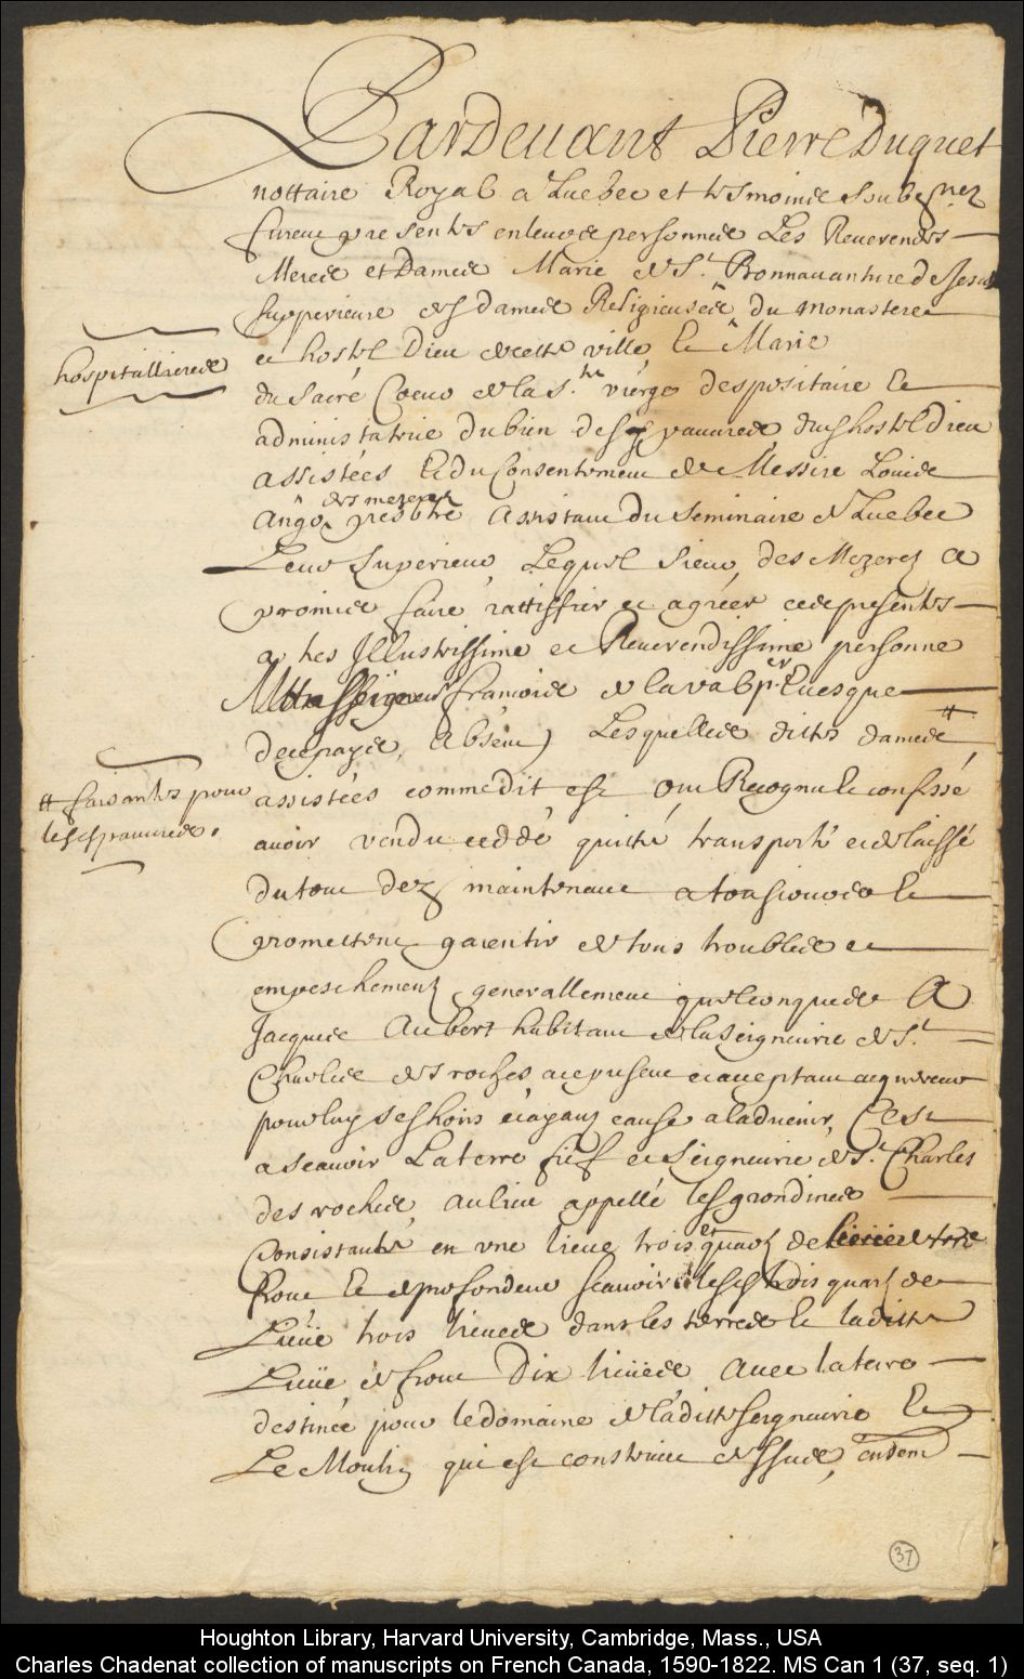 Pardevant Pierre Duquet
nottaire Royal a Quebec et tesmoins soubsignez
furent presentes en leurs personnes Les Reverendes
Meres et Dames Marie de St. Bonnavanture de Jesus
supperieure des dames Religieuses du monastere
hospitallieres
et hostel Dieu de cette ville, et Marie
du Sacré Coeur de la Ste. vierge despositaire et
administratrice du bien des pauvres dud hostel dieu
assistées et du Consentement de Messire Louis
des mezerets
Ango prestre assistant du seminaire de Quebec
Leur Superieur, Lequel sieur des Mezerez a
promis faire rattiffier et agreer ces presentes
a tres Illustrissime et Reverendissime personne
françois de laval pr. Evesque
de ce pays, absent) Lesquelles dittes dames #
# faisantes pour
lesd pauvres.
assistées comme dit est ont Recognu et confessé
avoir vendu ceddé quitté transporté et delaissé
du tout dez maintenant a tousiours et
promettent garentir de tous troubles et
empeschements generallement quelconques A
Jacques Aubert habitant de la seigneurie de St.
Charles des roches a ce present et acceptant acquereur
pour luy ses hoirs et ayans cause a ladvenir, C'est
a scavoir La terre fief et Seigneurie de St. Charles
des roches, au lieu appellé les grondines
Consistante en une lieue trois quarts de
front et de profondeur scavoir lesd trois quarts de
Lieüe trois lieues dans les terres et laditte
Lieüe de front Dix lieües avec la terre
destinée pour le domaine de laditte seigneurie et
Le Moulin qui est construit dessus,
37
Houghton Library, Harvard University, Cambridge, Mass., USA
Charles Chadenat collection of manuscripts on French Canada, 1590-1822. MS Can 1 (37, seq. 1)